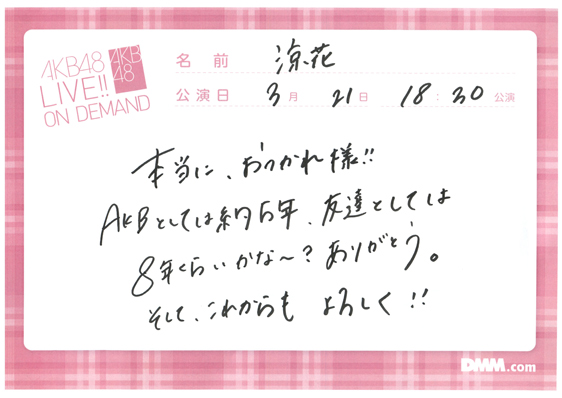 AKB48
LIVE!!
ON DEMAND
AKB
48
名前 涼花
公演日 3月 21日 18:30 公演
本当に、おつかれ様!!
AKBとしては約5年、友達としては
8年くらいかな〜?ありがとう。
そして、これからも よろしく!!
DMM.com